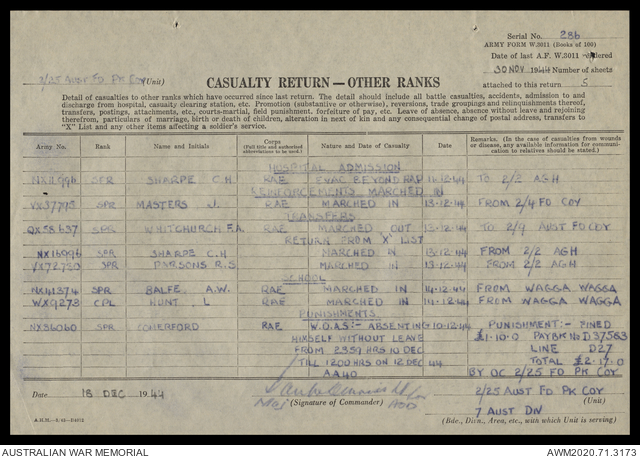 Serial No. 286
ARMY FORM W.3011 (Books of 100)
Date of last A.F. W.3011 rendered
30 NOV 1944 Number of sheets
attached to this return 5
2/25 AUST FD PK COY (Unit)
CASUALTY RETURN—OTHER RANKS
Detail of casualties to other ranks which have occurred since last return. The detail should include all battle casualties, accidents, admission to and
discharge from hospital, casualty clearing station, etc. Promotion (substantive or otherwise), reversions, trade groupings and relinquishments thereof,
transfers, postings, attachments, etc., courts-martial, field punishment, forfeiture of pay, etc. Leave of absence, absence without leave and rejoining
therefrom, particulars of marriage, birth or death of children, alteration in next of kin and any consequential change of postal address, transfers to
"X" List and any other items affecting a soldier's service.
Army No. Rank Name and Initials Corps (Full title and authorized abbreviations to be used.) Nature of Casualty Date of Casualty Remarks. (In the case of casualties from wounds or disease, any available information for communication to relatives should be stated.)
HOSPITAL ADMISSION
SPR SHARPE C.H RAE EVAC BEYOND RAP 11-12-44 TO 2/2 AGH
REINFORCEMENTS MARCHED IN
VX37795 SPR MASTERS J. RAE MARCHED IN 13-12-44 FROM 2/4 FD COY
TRANSFERS
QX58637 SPR WHITCHURCH F.A. RAE MARCHED OUT TO 2/9 AUST FD COY
RETURN FROM 'X' LIST
NX16996 SPR SHARPE C.H MARCHED IN 13-12-44 FROM 2/2 AGH
VX72750 SPR PARSONS R.S MARCHED IN 13-12-44 FROM 2/2 AGH
SCHOOL
NX41374 SPR BALFE A.W. RAE MARCHED IN 14-12-44 FROM WAGGA WAGGA
WX9278 CPL HUNT L RAE MARCHED IN 14-12-44 FROM WAGGA WAGGA
PUNISHMENTS
NX36060 SPR COMERFORD RAE W.O.A.S:- ABSENTING 10-12-44 PUNISHMENT:- FINED
HIMSELF WITHOUT LEAVE £1-10-0 PAYBK No D37563
FROM 2359 HRS 10 DEC LINE D27
TILL 1200 HRS ON 12 DEC 44 TOTAL £2-17-0
AA40 BY OC 2/25 FD PK COY
Date 18 DEC 1944
Maj (Signature of Commander)
2/25 AUST FD PK COY (Unit)
7 AUST DIV
(Bde., Divn., Area, etc., with which Unit is serving)
AUSTRALIAN WAR MEMORIAL
AWM2020.71.3173